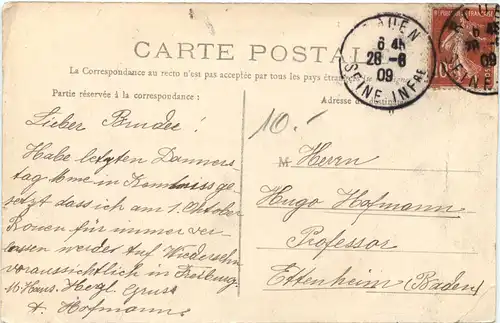 CARTE POSTALE
La Correspondance au recto n'est pas acceptée par tous les pays étrangers
Partie réservée à la correspondance:
Adresse du destinataire
6 45
28-8
09
SEINE INFRE
10
10.-
Lieber Bruder!
Habe letzten Donners
tag Mme in Kenntniss ge-
setzt dass ich am 1. Oktober
Rouen für immer ver-
lassen werde. Auf Wiedersehn
voraussichtlich in Freiburg.
Herzl. Gruss
Hofmann
M Herrn
Hugo Hofmann
Professor
Ettenheim (Baden)